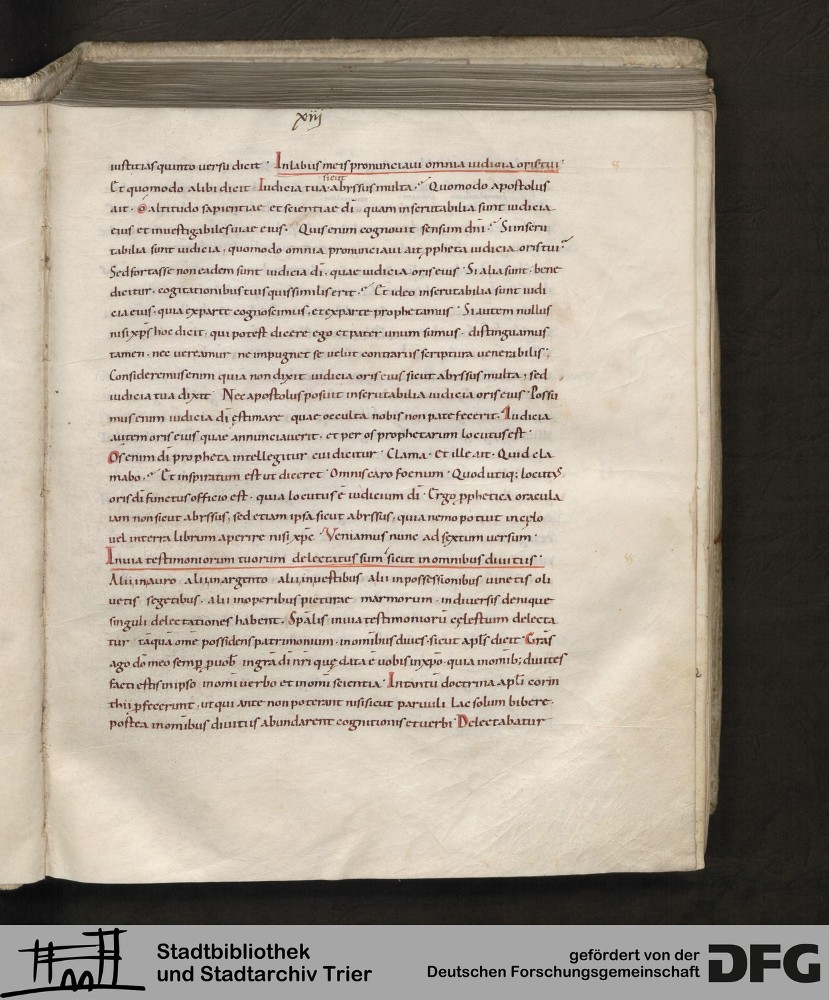 xiij
iustitias quinto versu dicit · In labiis meis pronunciavi omnia iudicia oris tui ·
Et quomodo alibi dicit Iudicia tua · abyssus multa · Quomodo apostolus
sicut
ait · O altitudo sapientiae et scientiae dī · quam inscrutabilia sunt iudicia
eius et investigabiles viae eius · Quis enim cognovit sensum dn̄i · Si inscru
tabilia sunt iudicia, quomodo omnia pronunciavi ait ppheta iudicia oris tui ·
Sed fortasse non eadem sunt iudicia dī · quae iudicia oris eius · Si alia sunt · bene
dicitur, cogitationibus tuis quis similis erit · Et ideo inscrutabilia sunt iudi
cia eius · quia ex parte cognoscimus, et ex parte prophetamus · Si autem nullus
nisi xp̄s hoc dicit, qui potest dicere ego et pater unum sumus · distinguamus
tamen · nec vereamur ne impugnet se velut contrariis scriptura venerabilis ;
Consideremus enim quia non dixit iudicia oris eius sicut abyssus multa, sed
iudicia tua dixit · Nec apostolus posuit inscrutabilia iudicia oris eius · Possu
mus enim iudicia dī estimare quae occulta nobis non patefecerit · Iudicia
autem oris eius quae annunciaverit · et per os prophetarum locutus est ·
Os enim dī propheta intellegitur cui dicitur · Clama · Et ille ait · Quid cla
mabo · Et inspiratum est ut diceret · Omnis caro foenum · Quod utiq; locutus
oris dī functus officio est · quia locutus ē iudicium dī · Ergo pphetica oracula
iam non sicut abyssus, sed etiam ipsa sicut abyssus, quia nemo potuit in cęlo
vel in terra librum aperire nisi xp̄c · Veniamus nunc ad sextum versum ·
In via testimoniorum tuorum delectatus sum sicut in omnibus divitiis ·
Alii in auro alii in argento alii in vestibus alii in possessionibus vinetis oli
vetis segetibus · alii in operibus picturae marmorum · in diversis denique
singuli delectationes habent · Spālis in via testimoniorū cęlestium delecta
tur tāquā omē possidens patrimonium · in omībus dives · sicut apl̄s dicit · Grās
ago dō meo semp̱ p̱ vob̄ in grā dī nr̄i quę data ē vobis in xp̄o · quia in omīb; divites
facti estis in ipso in omī verbo et in omī scientia · In tantū doctrina apl̄i corin
thii pfecerunt, ut qui ante non poterant nisi sicut parvuli lac solum bibere ·
postea in omībus divitiis abundarent cognitionis et verbi · Delectabatur
Stadtbibliothek
und Stadtarchiv Trier
gefördert von der
Deutschen Forschungsgemeinschaft
DFG